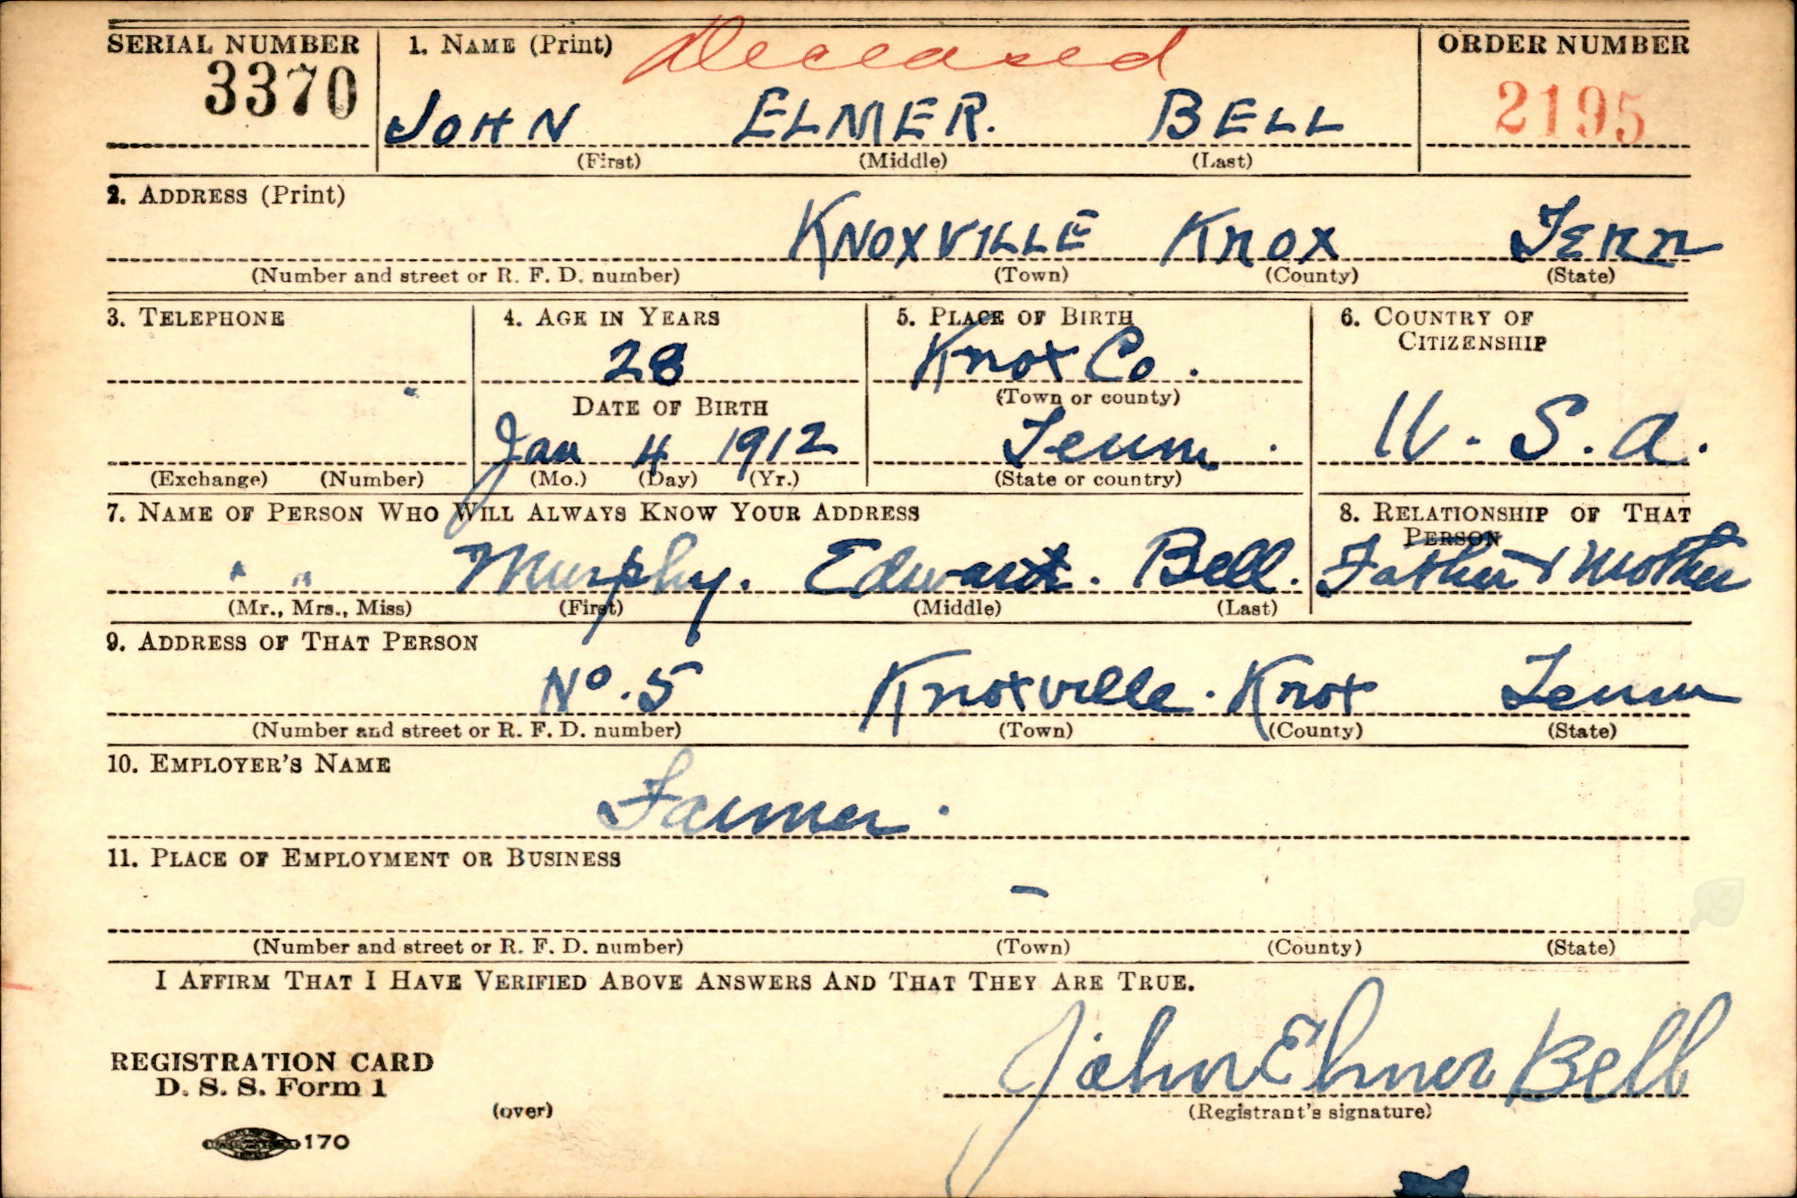 SERIAL NUMBER 1. NAME (Print) Deceased ORDER NUMBER
3370 JOHN ELMER. BELL 2195
(First) (Middle) (Last)
2. ADDRESS (Print)
KNOXVILLE KNOX TENN
(Number and street or R. F. D. number) (Town) (County) (State)
3. TELEPHONE 4. AGE IN YEARS 5. PLACE OF BIRTH 6. COUNTRY OF CITIZENSHIP
28 Knox Co.
DATE OF BIRTH (Town or county)
Jan 4 1912 Tenn. U. S. A.
(Exchange) (Number) (Mo.) (Day) (Yr.) (State or country)
7. NAME OF PERSON WHO WILL ALWAYS KNOW YOUR ADDRESS 8. RELATIONSHIP OF THAT PERSON
" " Murphy. Edward. Bell. Father & Mother
(Mr., Mrs., Miss) (First) (Middle) (Last)
9. ADDRESS OF THAT PERSON
No. 5 Knoxville. Knox Tenn
(Number and street or R. F. D. number) (Town) (County) (State)
10. EMPLOYER'S NAME
Farmer.
11. PLACE OF EMPLOYMENT OR BUSINESS
—
(Number and street or R. F. D. number) (Town) (County) (State)
I AFFIRM THAT I HAVE VERIFIED ABOVE ANSWERS AND THAT THEY ARE TRUE.
REGISTRATION CARD
D. S. S. Form 1
John Elmer Bell
(over) (Registrant's signature)
170